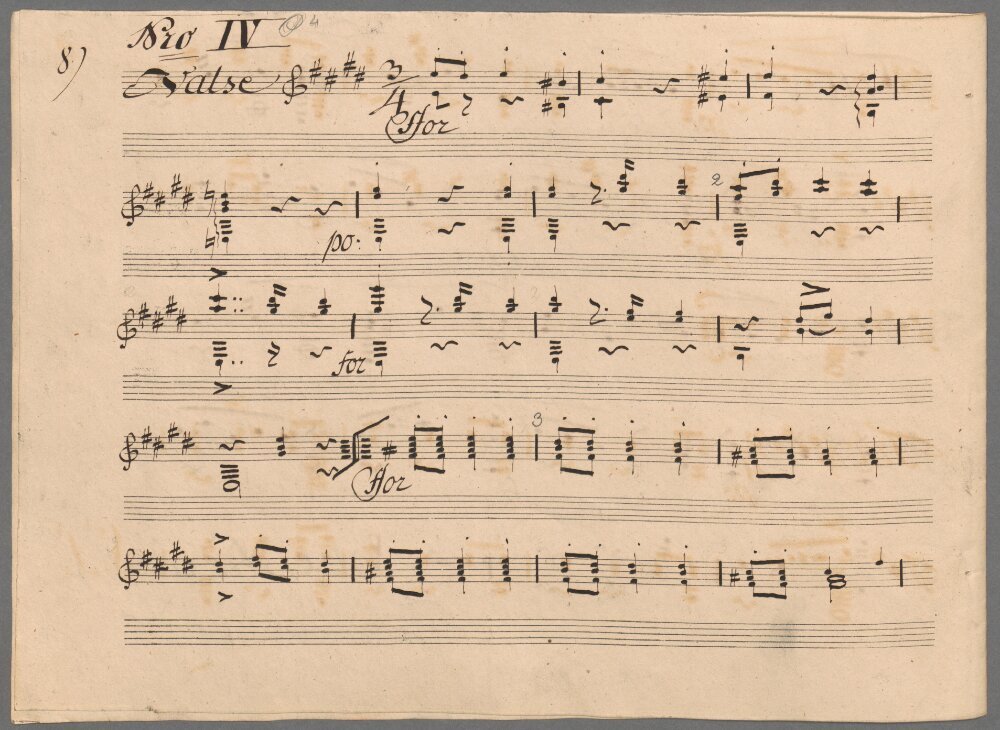 Nro IV 4
8)
Valse 3/4
ffor
po. 2
for
3
ffor